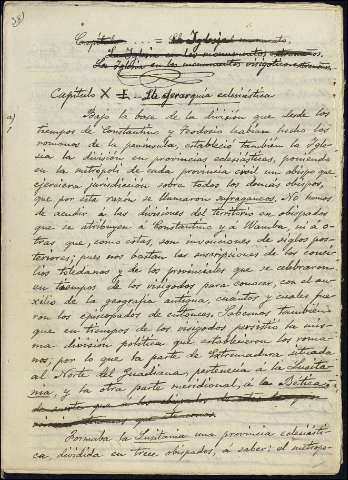 38)
Capítulo ... = La Iglesia
La Iglesia en los monumentos
La Iglesia en los monumentos visigóticos
Capítulo X I. La gerarquía eclesiástica
a)
Bajo la base de la división que desde los
tiempos de Constantino y Teodosio habían hecho los
romanos de la península, estableció también la Igle-
sia la división en provincias eclesiásticas, poniendo
en la metrópoli de cada provincia civil un obispo que
ejerciera jurisdicción sobre todos los demás obispos,
que por esta razón se llamaron sufragáneos. No hemos
de acudir á las divisiones del territorio en obispados
que se atribuyen á Constantino y a Wamba, ni a o-
tras que, como estas, son invenciones de siglos pos-
teriores; pues nos bastan las suscripciones de los conci-
lios toledanos y de los provinciales que se celebraron
en tiempos de los visigodos para conocer, con el au-
xilio de la geografía antigua, cuantos y cuales fue-
ron los episcopados de entonces. Sabemos también
que en tiempos de los visigodos persistió la mis-
ma división política que establecieron los roma-
nos; por lo que la parte de Extremadura situada
al Norte del Guadiana pertenecía á la Lusita-
nia, y la otra parte meridional, á la Bética
Formaba la Lusitania una provincia eclesiásti-
ca, dividida en trece obispados, á saber: el metropo-